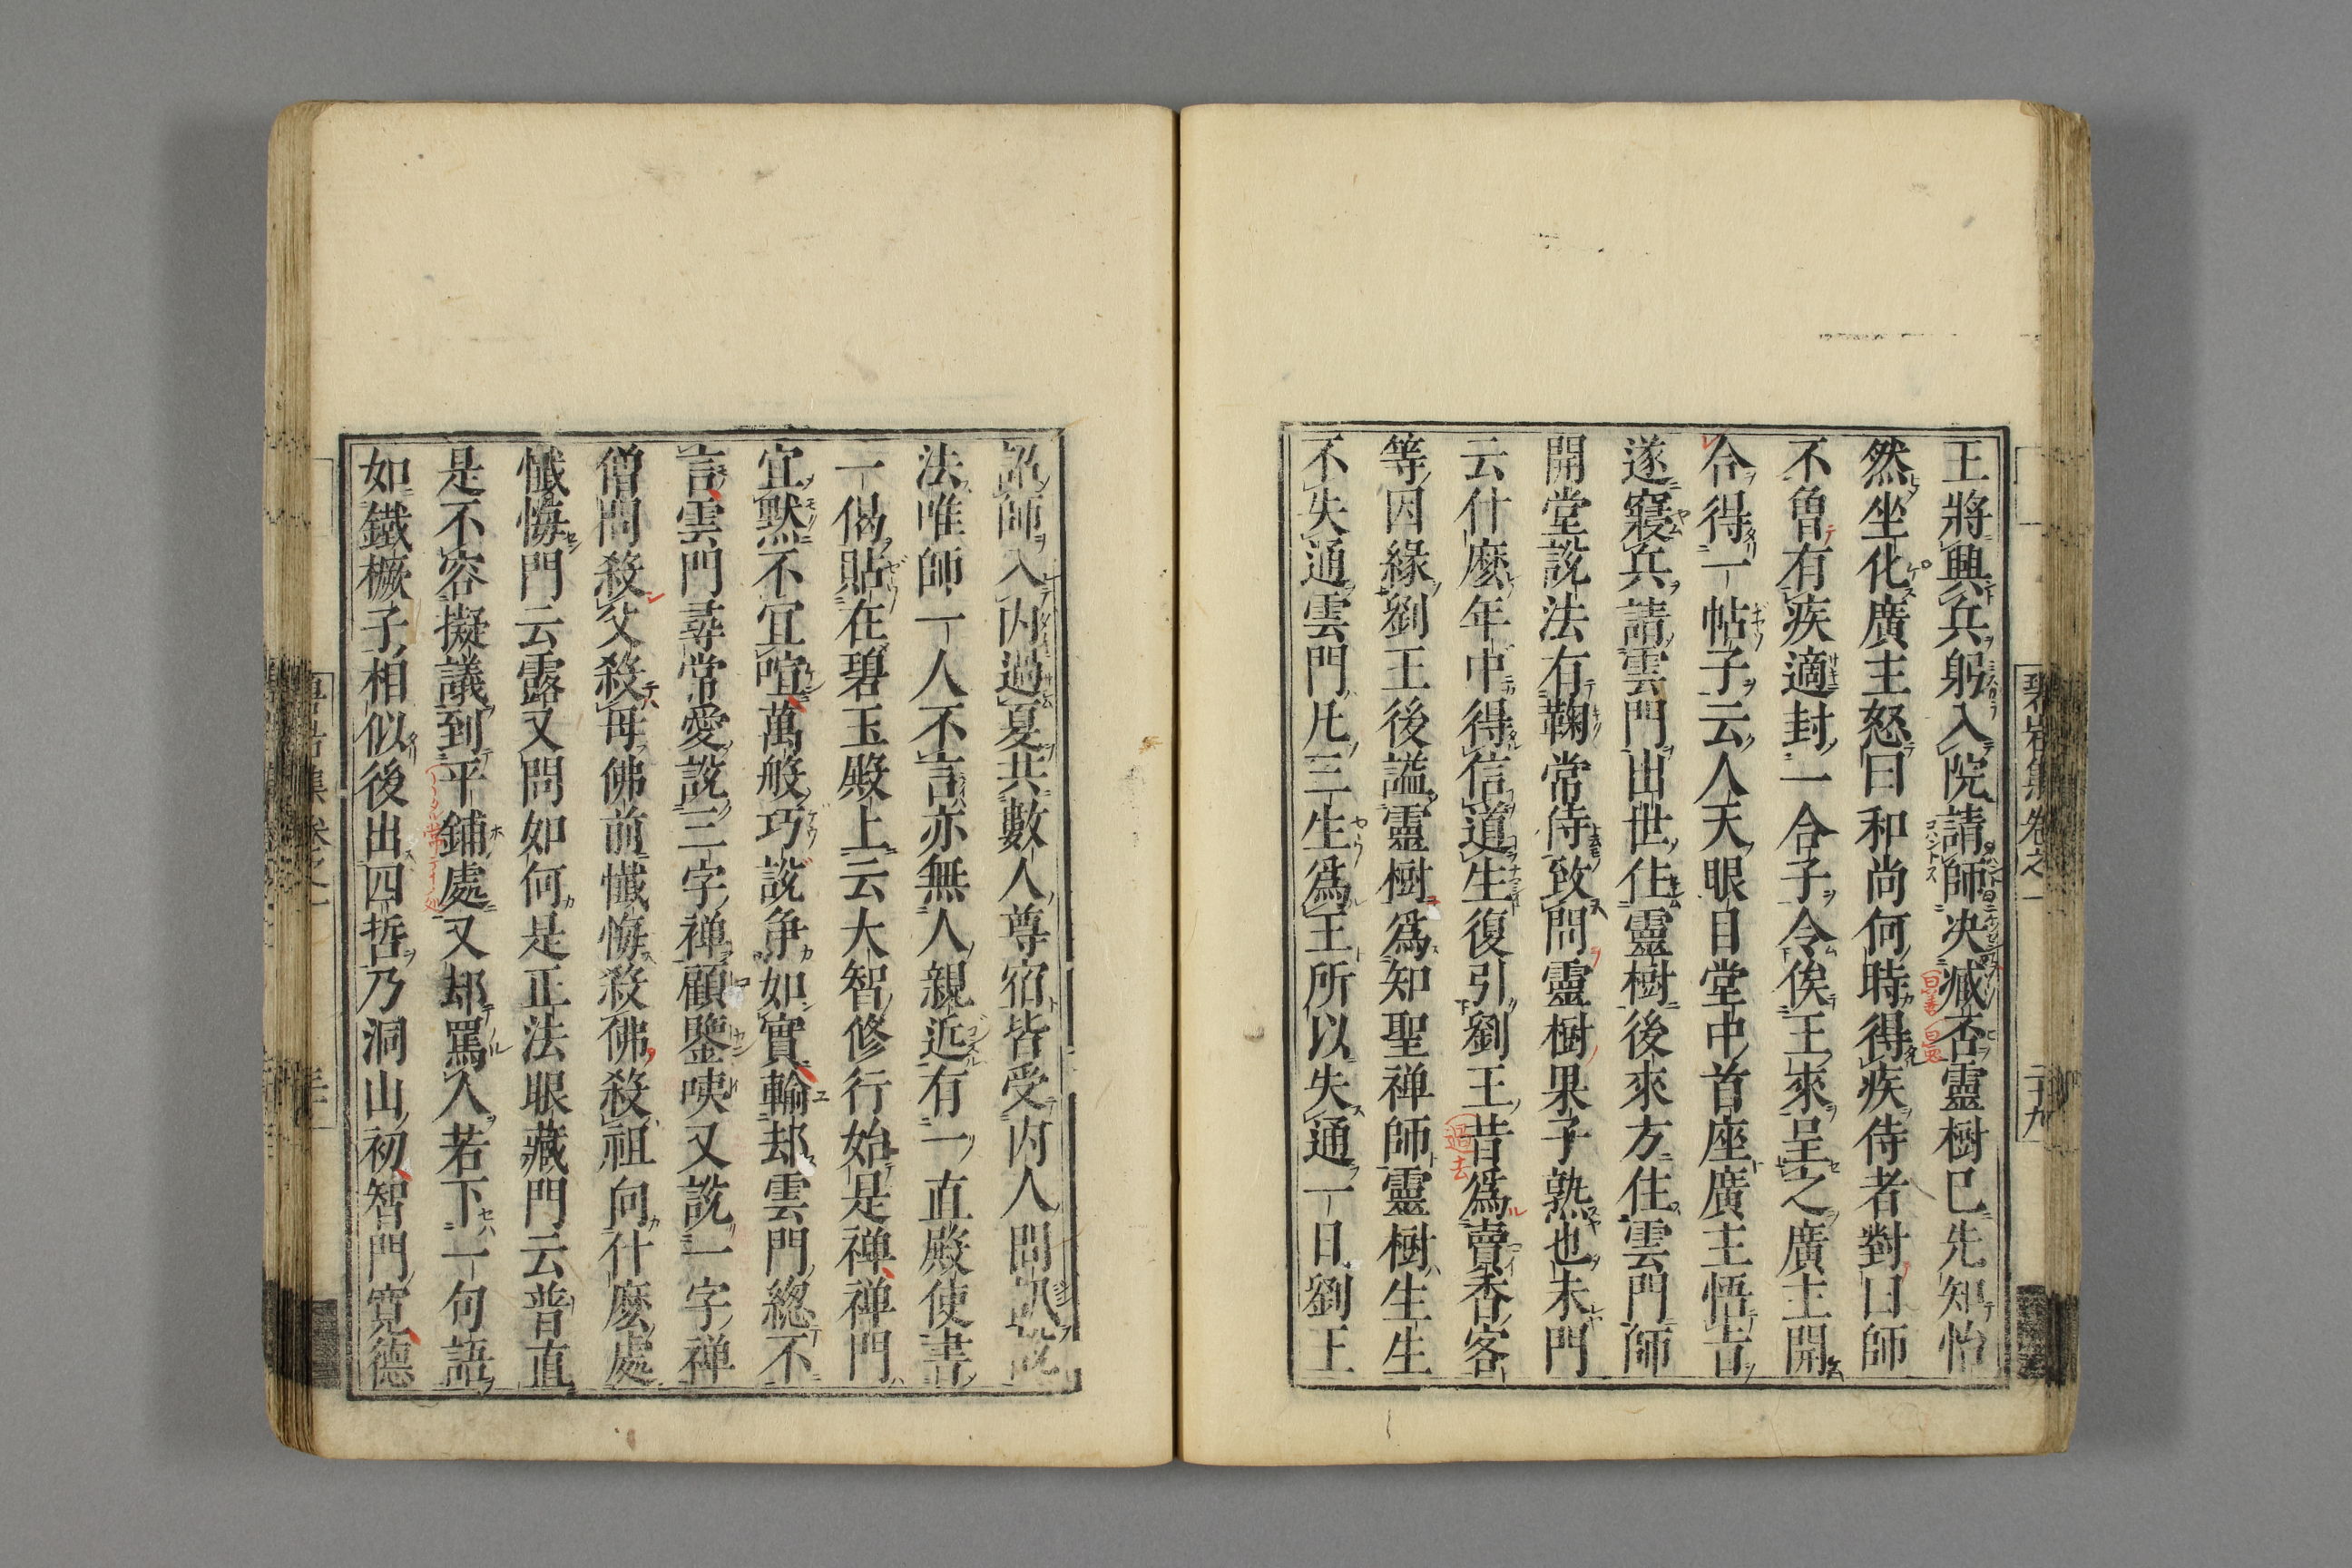 王將興兵躬入院請師決臧否靈樹已先知怡
然坐化廣主怒曰和尚何時得疾侍者對曰師
不曾有疾適封一合子令俟王來呈之廣主開
合得一帖子云人天眼目堂中首座廣主悟旨
遂寢兵請雲門出世住靈樹後來方住雲門師
開堂說法有鞠常侍致問靈樹果子熟也未門
云什麼年中得信道生復引劉王昔為賣香客
等因緣劉王後謚靈樹為知聖禅師靈樹生生
不失通雲門凡三生為王所以失通一日劉王
詔師入內過夏共數人尊宿皆受內人問訊說
法唯師一人不言亦無人親近有一直殿使書
一偈貼在碧玉殿上云大智修行始是禅禅門
宜默不宜喧萬般巧說争如實輸却雲門緫不
言雲門尋常愛說三字禅顧鑒咦又說一字禅
僧問殺父殺母佛前懺悔殺佛殺祖向什麼處
懺悔門云露又問如何是正法眼藏門云普直
是不容擬議到平鋪處又却罵人若下一句語
如鐵橛子相似後出四哲乃洞山初智門寬德